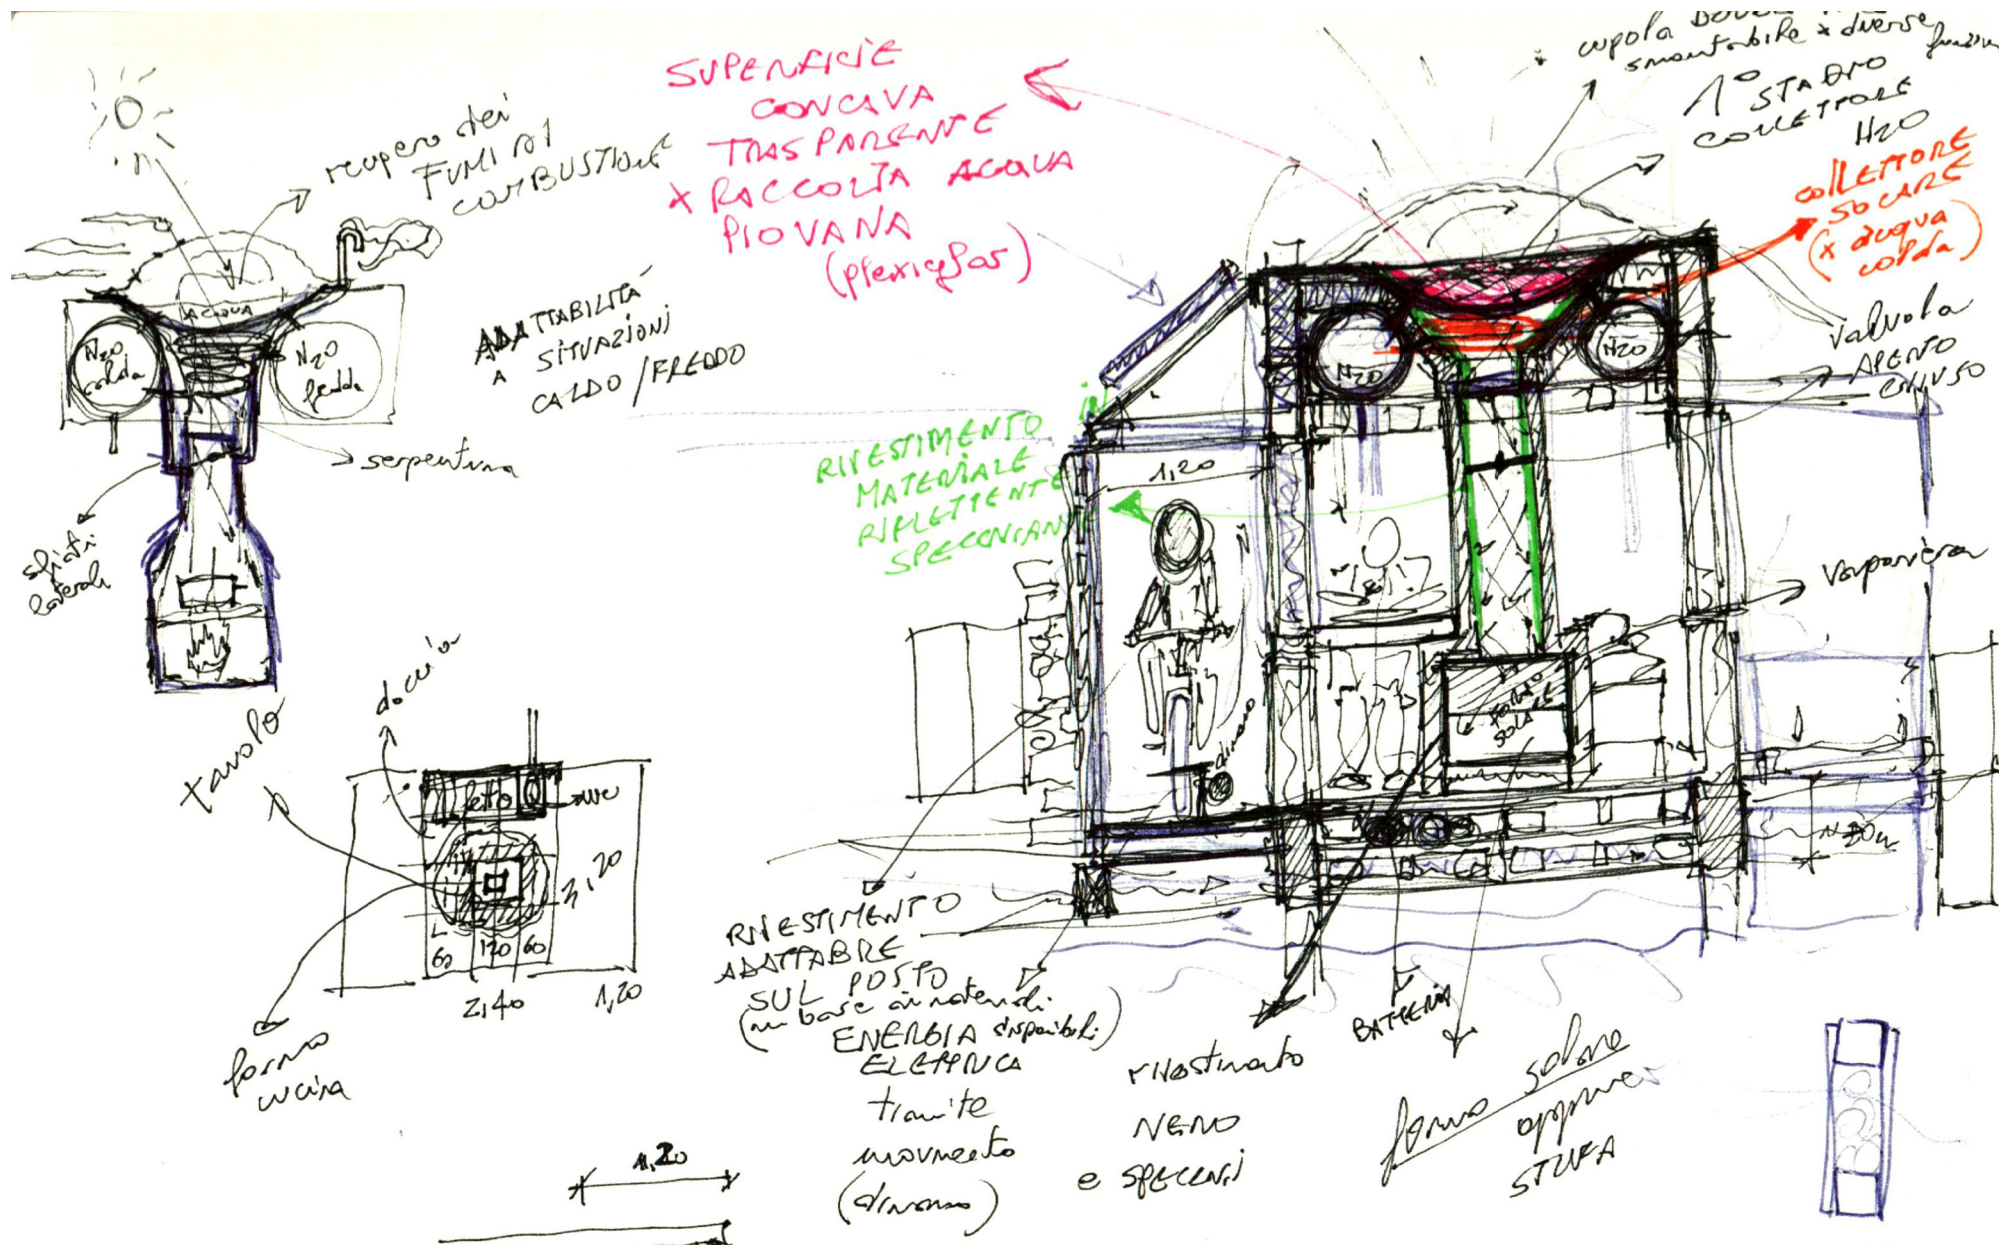 recupero dei
FUMI DI
COMBUSTIONE
ACQUA
H2O
calda
H2O
fredda
serpentina
sfiati
laterali
ADATTABILITÀ
A SITUAZIONI
CALDO/FREDDO
SUPERFICIE
CONCAVA
TRASPARENTE
X RACCOLTA ACQUA
PIOVANA
(plexiglas)
* cupola
smontabile x diverse
1° STADIO
COLLETTORE
H2O
COLLETTORE
SOLARE
(x acqua
calda)
valvola
APERTO
CHIUSO
H2O
H2O
RIVESTIMENTO
MATERIALE
RIFLETTENTE
SPECCHIANTE
1,20
vaporiera
FORNO
SOLARE
dinamo
tavolo
doccia
letto
wc
3,20
60
120
60
2,40
1,20
forno
cucina
RIVESTIMENTO
ADATTABILE
SUL POSTO
(in base ai materiali
disponibili)
ENERGIA
ELETTRICA
tramite
movimento
(dinamo)
rivestimento
NERO
e SPECCHI
BATTERIA
forno solare
oppure
STUFA
1,20